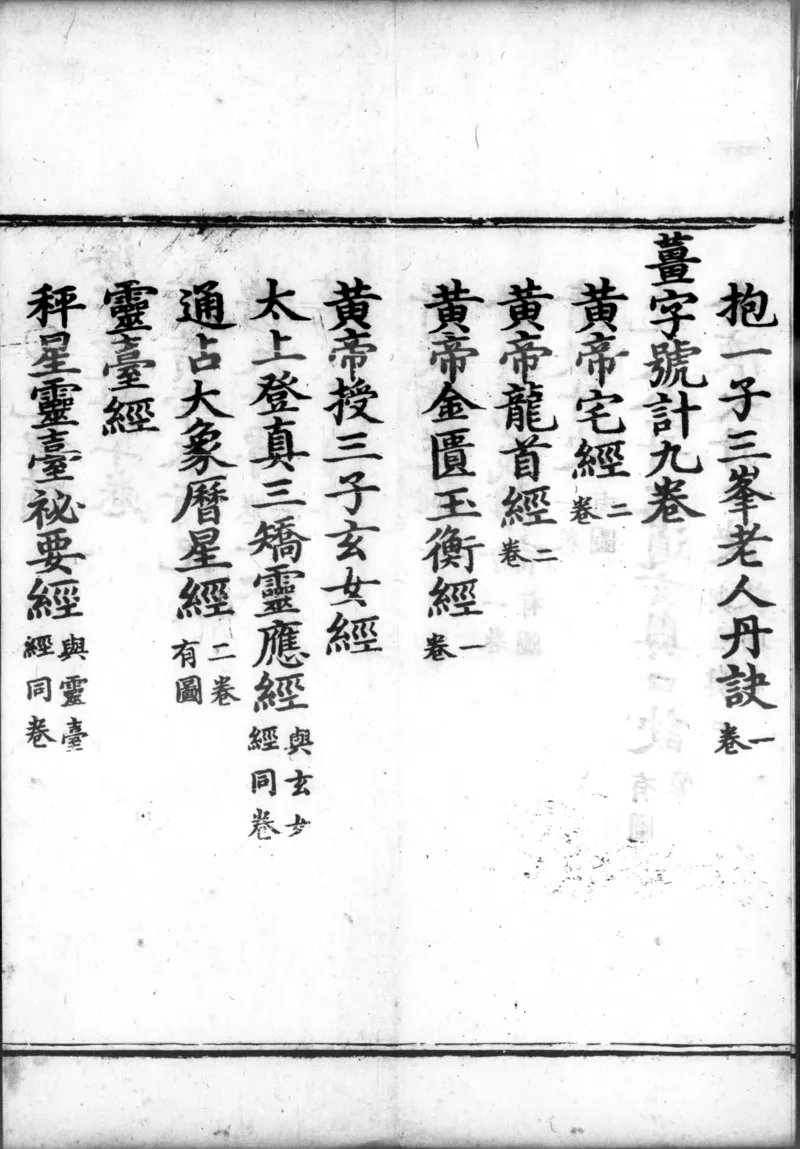 抱一子三峯老人丹訣一卷
薑字號計九卷
黄帝宅經二卷
黄帝龍首經二卷
黄帝金匱玉衡經一卷
黄帝授三子玄女經
太上登真三矯靈應經與玄女經同卷
通占大象曆星經二卷有圖
靈臺經
秤星靈臺祕要經與靈臺經同卷